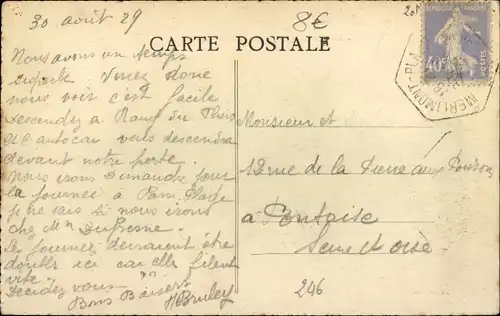 30 août 29
8€
CARTE POSTALE
REPUBLIQUE FRANÇAISE
40c
POSTES
MERLIMONT-PL
Nous avons un temps
superbe Venez donc
nous voir c'est facile
Descendez à Rang du Fliers
et l'autocar vous descendra
devant notre porte.
Nous irons Dimanche pour
la journée à Paris Plage
je ne sais si nous irons
chez Mm Dufresne.
Les journées devraient être
doubles ici car elles filent
vite.
Décidez vous
Bons Baisers
HBruley
Monsieur et
12 rue de la Pierre aux Poissons
à Pontoise
Seine et Oise
246